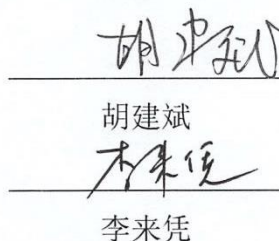 胡建斌
胡建斌
李来凭
李来凭